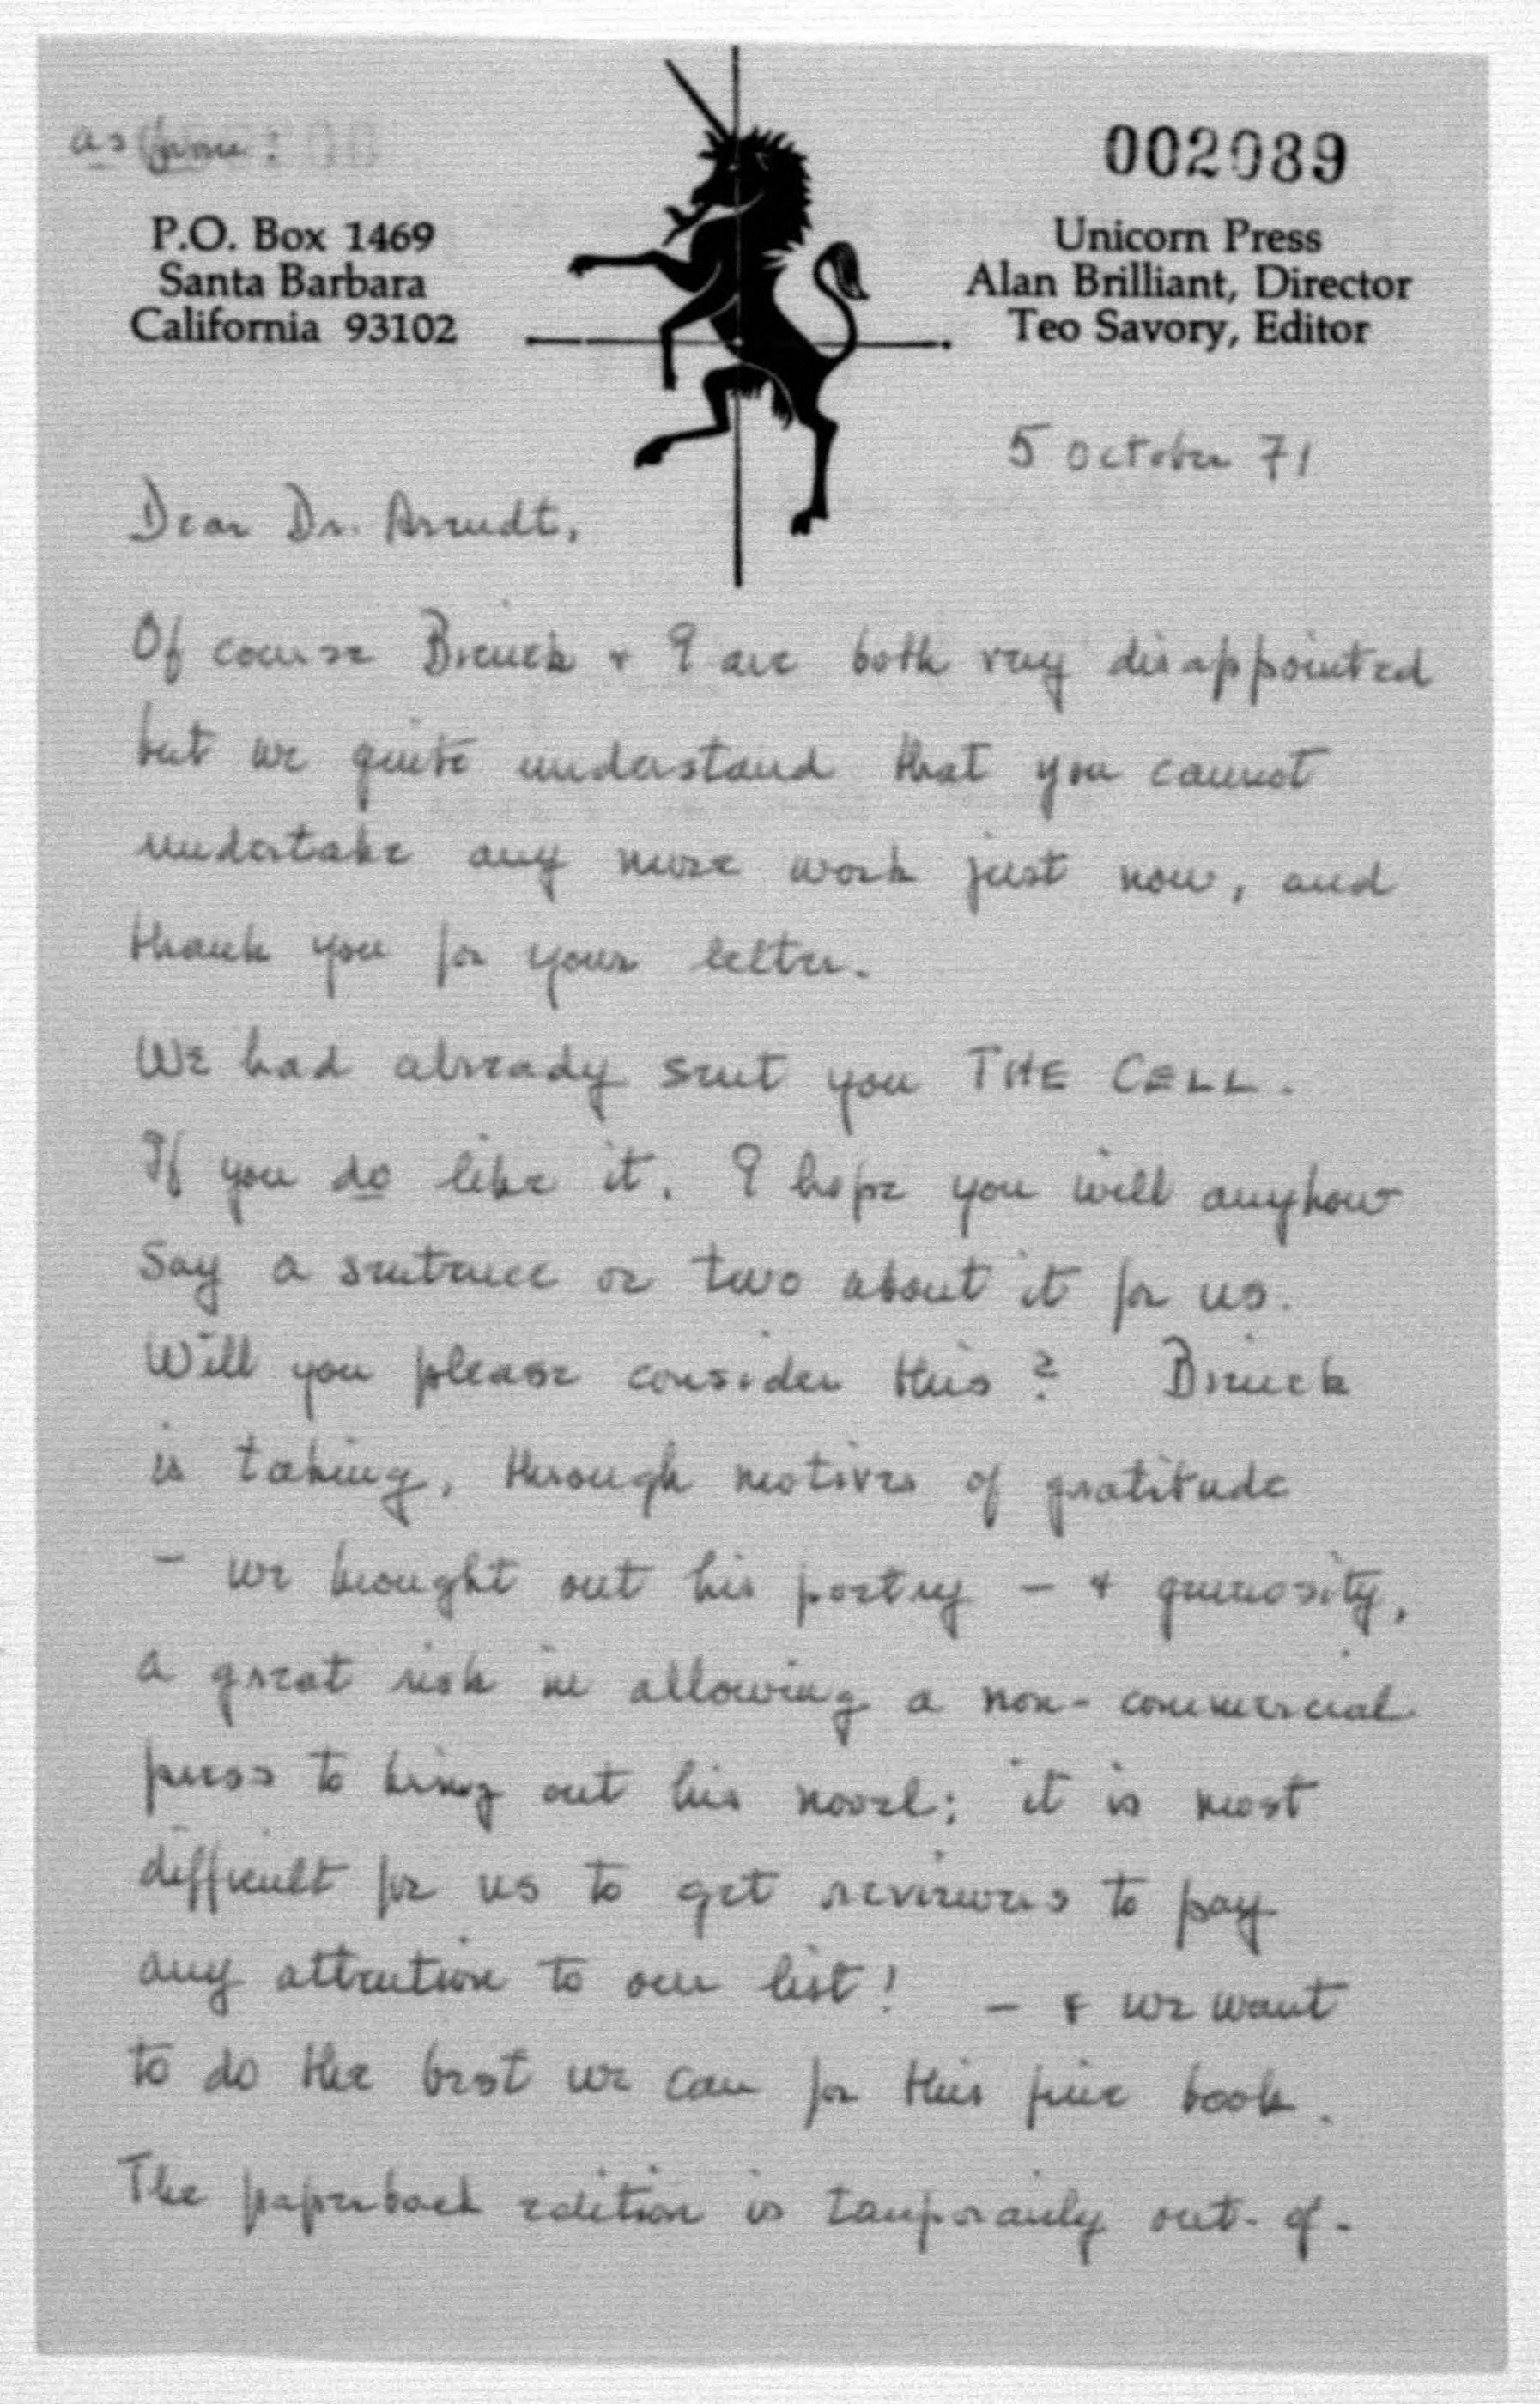 as from:
002089
P.O. Box 1469
Santa Barbara
California 93102
Unicorn Press
Alan Brilliant, Director
Teo Savory, Editor
5 October 71
Dear Dr. Arendt,
Of course Bienek + I are both very disappointed
but we quite understand that you cannot
undertake any more work just now, and
thank you for your letter.
We had already sent you THE CELL.
If you do like it, I hope you will anyhow
say a sentence or two about it for us.
Will you please consider this? Bienek
is taking, through motives of gratitude
– we brought out his poetry – + generosity,
a great risk in allowing a non-commercial
press to bring out his novel; it is most
difficult for us to get reviewers to pay
any attention to our list! – + we want
to do the best we can for this fine book.
The paperback edition is temporarily out-of-